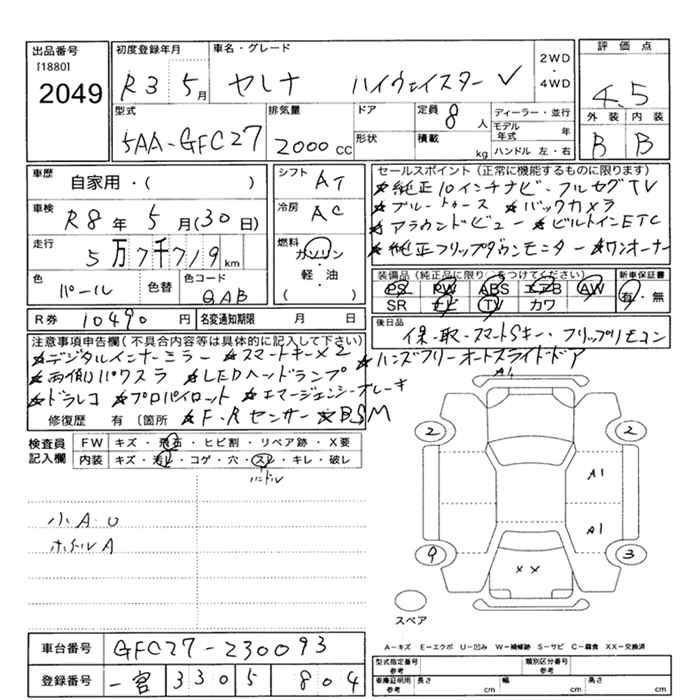 出品番号
[1880]
2049
初度登録年月
R3 5月
車名・グレード
セレナ ハイウェイスターV
2WD
・
4WD
評価点
4.5
外装 内装
B B
型式
5AA-GFC27
排気量
2000cc
ドア
形状
定員
8人
積載
kg
ディーラー・並行
モデル年式 年
ハンドル 左・右
車歴
自家用・( )
車検
R8年5月(30日)
走行
5万7千719km
色
パール
色替
色コード
QAB
シフト
AT
冷房
AC
燃料
ガソリン
軽・油
( )
セールスポイント(正常に機能するものに限ります)
★純正10インチナビ・フルセグTV
★ブルートゥース ★バックカメラ
★アラウンドビュー ★ビルトインETC
★純正フリップダウンモニター ★ワンオーナー
装備品(純正品に限り○をつけてください)
PS PW ABS エアB AW
SR ナビ TV カワ
新車保証書
有・無
R券 10490円
名変通知期限 月 日
後日品
保・取・スマートSキー・フリップリモコン
注意事項申告欄(不具合内容等は具体的に記入して下さい)
★デジタルインナーミラー ★スマートキー×2 ★ハンズフリーオートスライドドア
★両側パワスラ ★LEDヘッドランプ
★ドラレコ ★プロパイロット ★エマージェンシーブレーキ
修復歴 有〔箇所 ★F・Rセンサー ★BSM
検査員
記入欄
FW キズ・飛石・ヒビ割・リペア跡・X要
内装 キズ・汚レ・コゲ・穴・スレ・キレ・破レ
ハンドル
小A・U
ホイールA
A1
2 2
A1
A1
9 3
××
スペア
車台番号 GFC27-230093
登録番号 一宮 330 5 804
A−キズ E−エクボ U−凹み W−補修跡 S−サビ C−腐食 XX−交換済
型式指定番号
参考
類別区分番号
参考
車庫証明用
参考
長さ cm 幅 cm 高さ cm